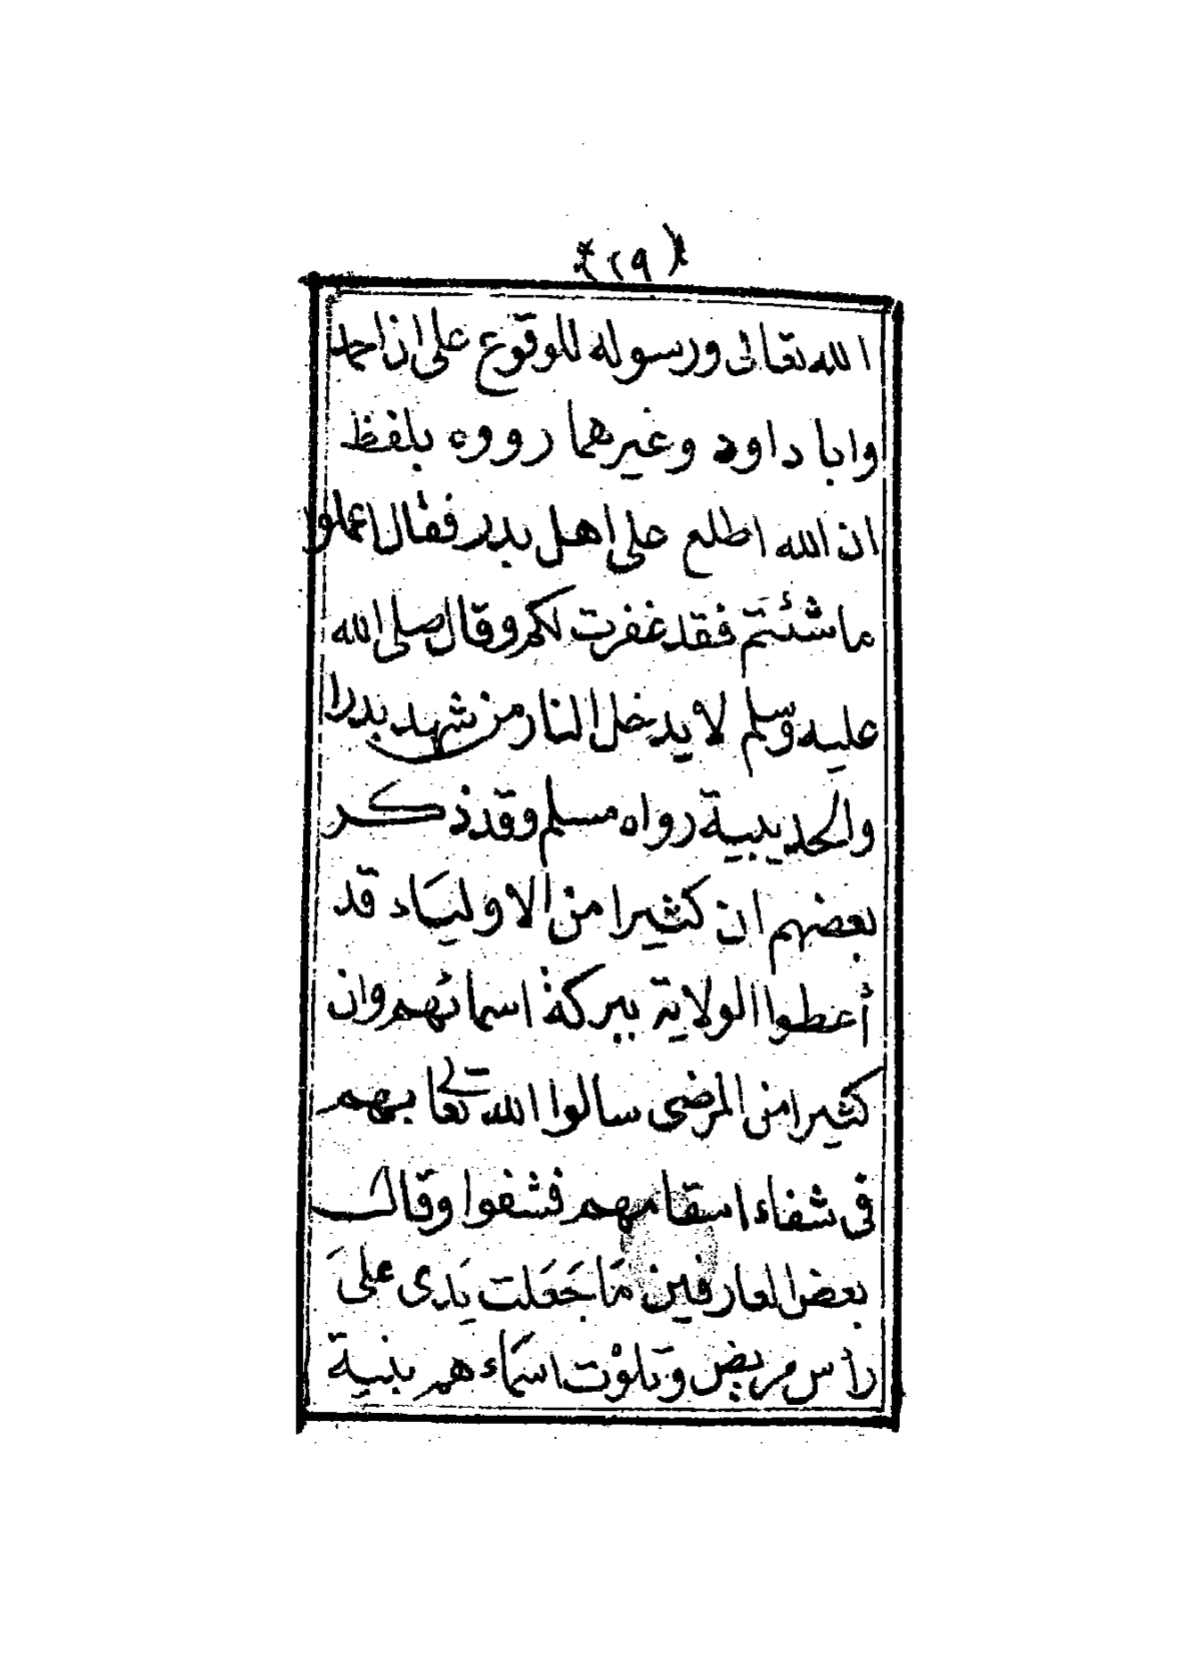 (٢٩)
الله تعالى ورسوله للوقوع على ان احمد
وابا داود وغيرهما رووه بلفظ
ان الله اطلع على اهل بدر فقال اعملوا
ما شئتم فقد غفرت لكم وقال صلى الله
عليه وسلم لا يدخل النار من شهد بدرا
والحديبية رواه مسلم وقد ذكر
بعضهم ان كثيرا من الاولياء قد
أعطوا الولاية ببركة اسمائهم وان
كثيرا من المرضى سالوا الله تعالى بهم
فى شفاء اسقامهم فشفوا وقال
بعض العارفين مَا جَعَلت يَدى علىَ
رأس مريض وتلوْت اسمَاء هم بنية